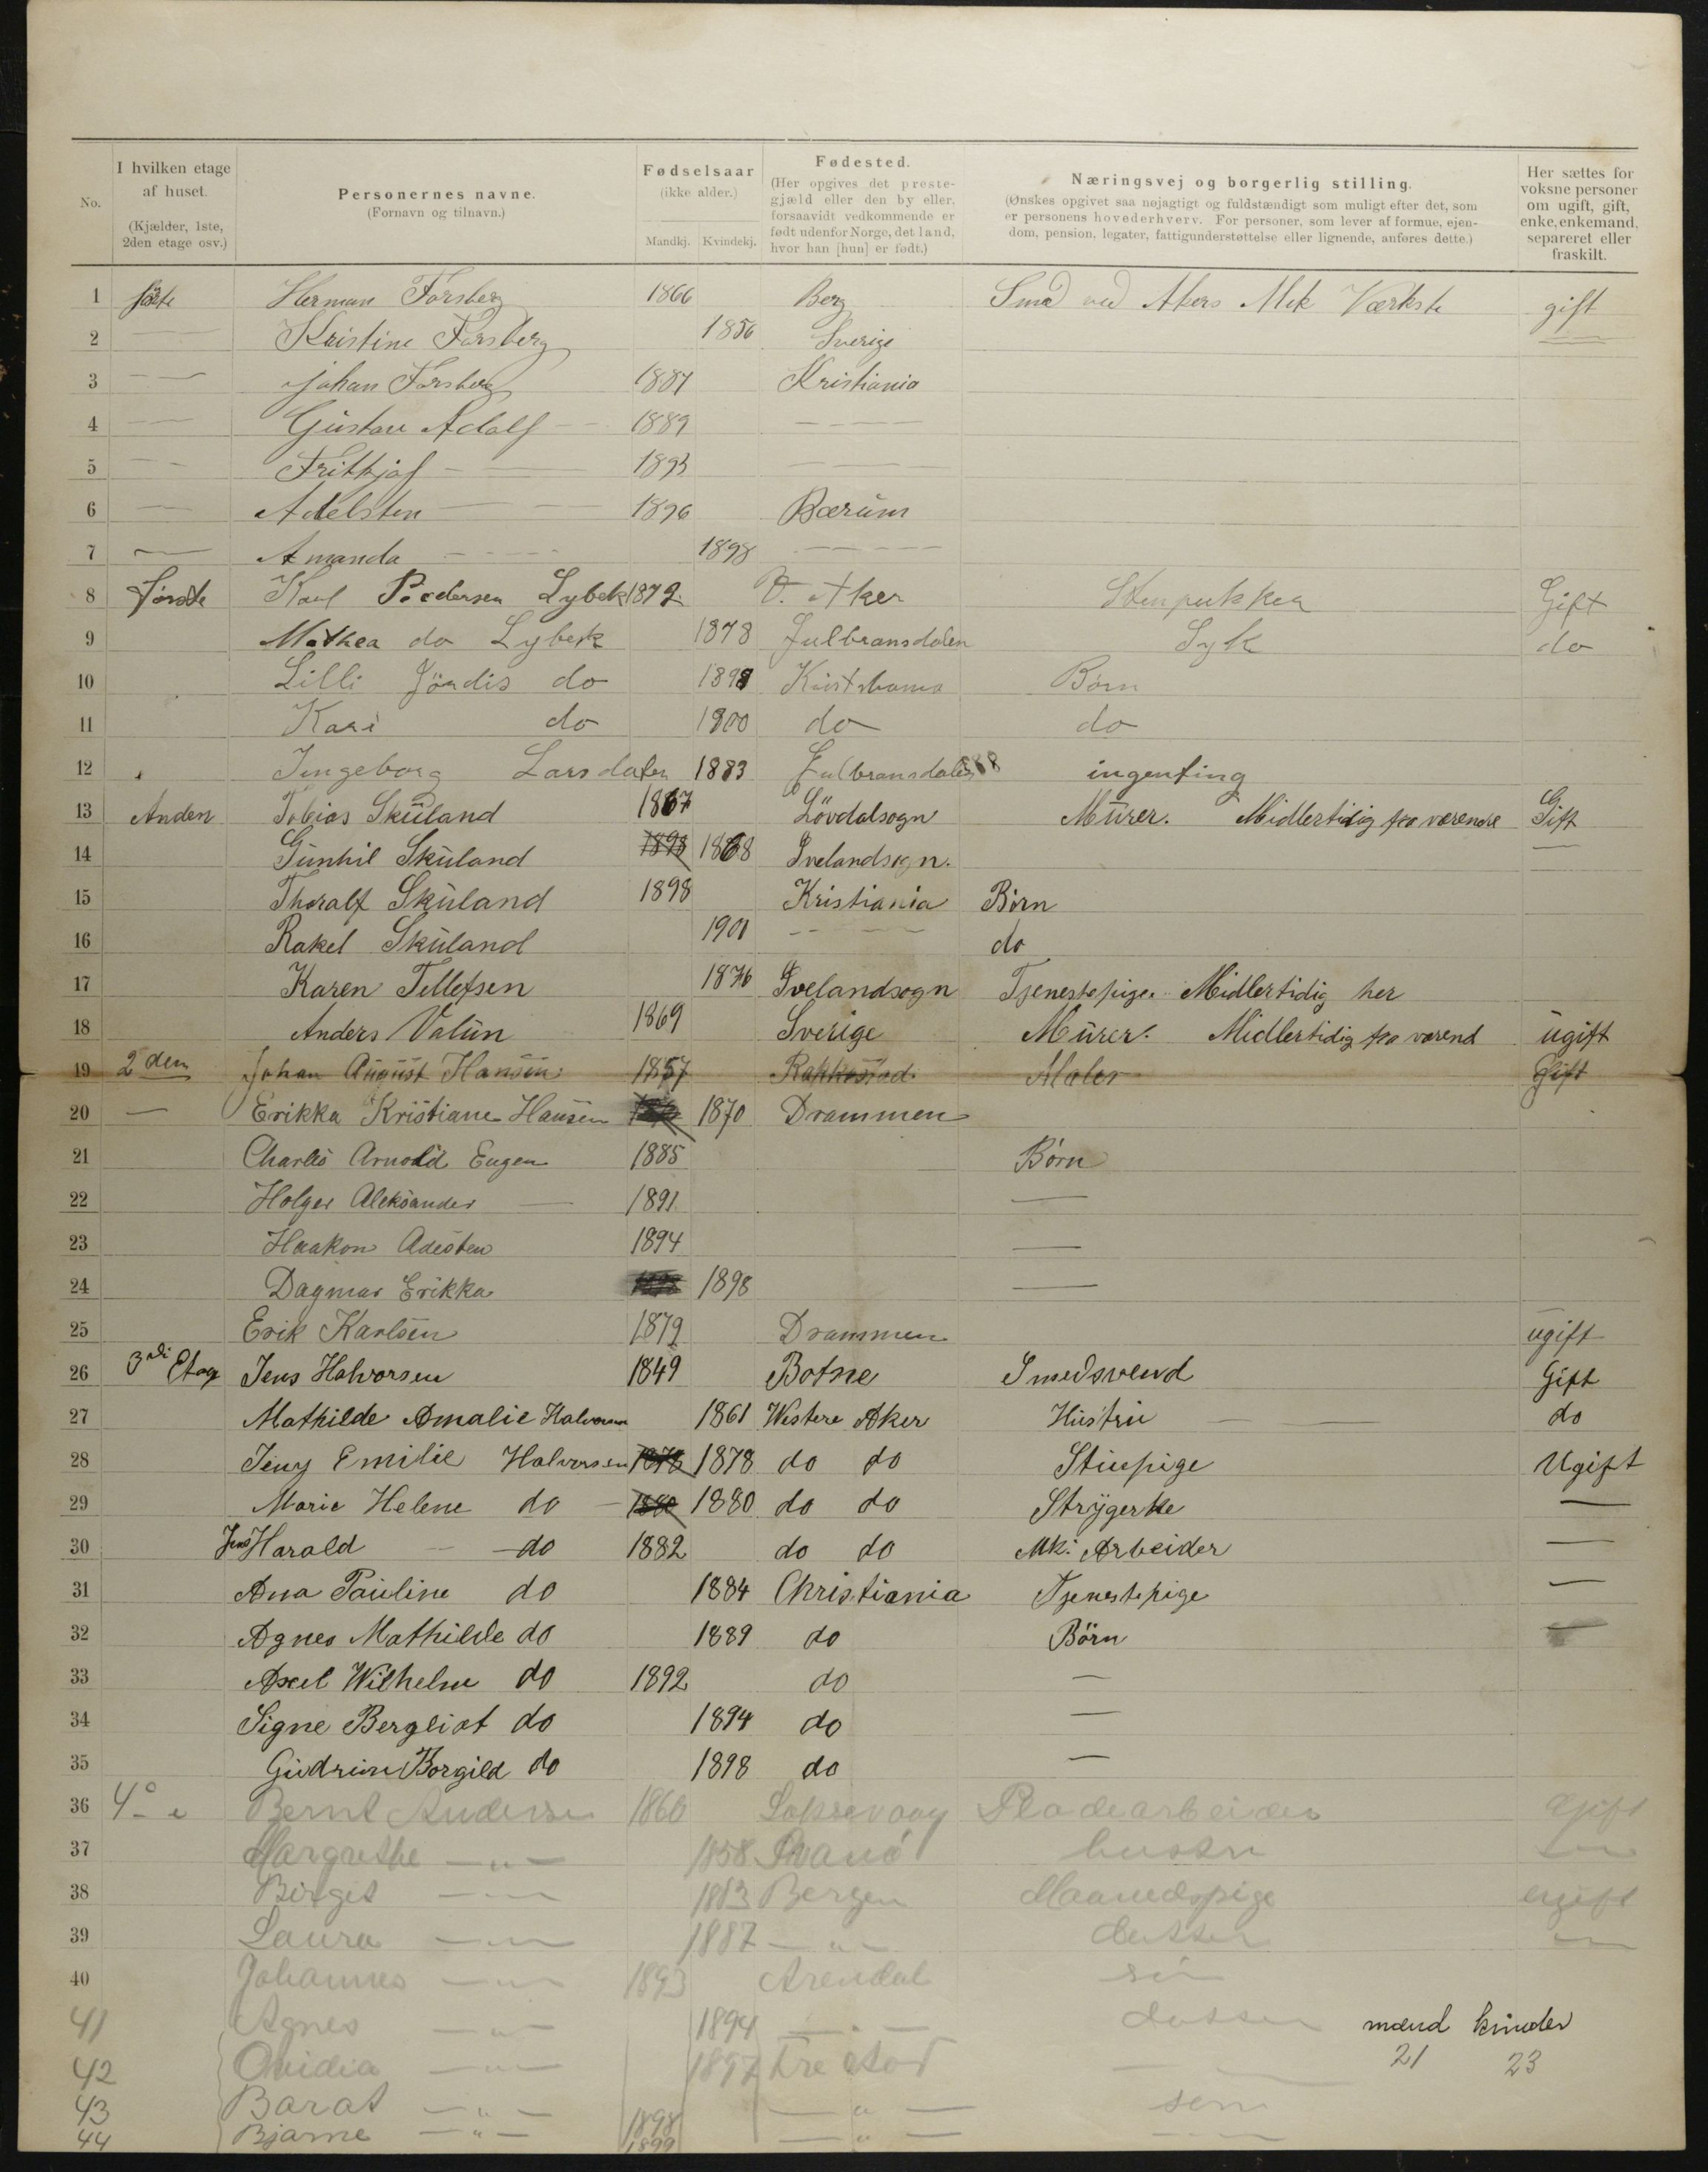 No.
I hvilken etage af huset.
(Kjælder, 1ste, 2den etage osv.)
Personernes navne.
(Fornavn og tilnavn.)
Fødselsaar
(ikke alder.)
Mandkj. Kvindekj.
Fødested.
(Her opgives det prestegjæld eller den by eller, forsaavidt vedkommende er født udenfor Norge, det land, hvor han [hun] er født.)
Næringsvej og borgerlig stilling.
(Ønskes opgivet saa nøjagtigt og fuldstændigt som muligt efter det, som er personens hovederhverv. For personer, som lever af formue, ejendom, pension, legater, fattigunderstøttelse eller lignende, anføres dette.)
Her sættes for voksne personer om ugift, gift, enke, enkemand, separeret eller fraskilt.
1 Herman Forsberg 1866 Berg Smed ved Akers Mek Værkste gift
2 — Kristine Forsberg 1856 Sverige —
3 — Johan Forsberg 1887 Kristiania
4 — Gustav Adolf — 1889 —
5 — Frithjof — 1893 —
6 — Adelsten — 1896 Bærum
7 — Amanda — 1898 —
8 første Karl Pedersen Lybek 1872 V. Aker Stenpukker Gift
9 Mathea do Lybek 1878 Gulbransdalen Syk do
10 Lilli Jöndis do 1898 Børn
11 Kari do 1900 do do
12 Ingeborg Larsdater 1883 Gulbransdalen ingenting
13 Anden Tobias Skuland 1867 Lövdalsogn Murer. Midlertidig fra værende Gift
14 Gunhil Skuland 1898 1868 Ivelandsogn. —
15 Thoralf Skuland 1898 Kristiania Børn
16 Rakel Skuland 1900 — do
17 Karen Tellefsen 1876 Ivelandsogn Tjenestepige. Midlertidig her
18 Anders Valun 1869 Sverige Murer. Midlertidig fra værend ugift
19 2den Johan August Hansen 1857 Rakkestad Maler Gift
20 — Erikka Kristiane Hansen 1870 Drammen
21 Charles Arnold Eugen 1885 Børn
22 Holger Aleksander — 1891 —
23 Haakon Adesten 1894 —
24 Dagmar Erikka 1898 —
25 Erik Karlsen 1879 Drammen ugift
26 3die Etag Jens Halvorsen 1849 Botne Smedsvend Gift
27 Mathilde Amalie Halvorsen 1861 Westere Aker Hustru — — do
28 Jeny Emilie Halvorsen 1878 1878 do do Stuepige Ugift
29 Marie Helene do — 1880 1880 do do Strygerke —
30 Jens Harald — do 1882 do do Mk: Arbeider —
31 Ana Pauline do 1884 Christiania Tjenestepige —
32 Agnes Mathilde do 1889 do Börn —
33 Axel Wilhelm do 1892 do —
34 Signe Bergliot do 1894 do —
35 Gudrun Borgild do 1898 do —
36 4 Bernt Andersen 1860 Laksevaag Pladearbeider Gift
37 Margrethe —"— 1858 hustru —"—
38 Birget —"— 1883 Bergen Maanedspige ugift
39 Laura —"— 1887 —"— datter —"—
40 Johannes —"— 1893 Arendal sön
41 Agnes —"— 1894 —"— datter
mænd kvinder
42 Ovidia —"— 1897 —
21 23
43 Barat —"— 1898 —"— sön
44 Bjarne —"— 1899 —"— —